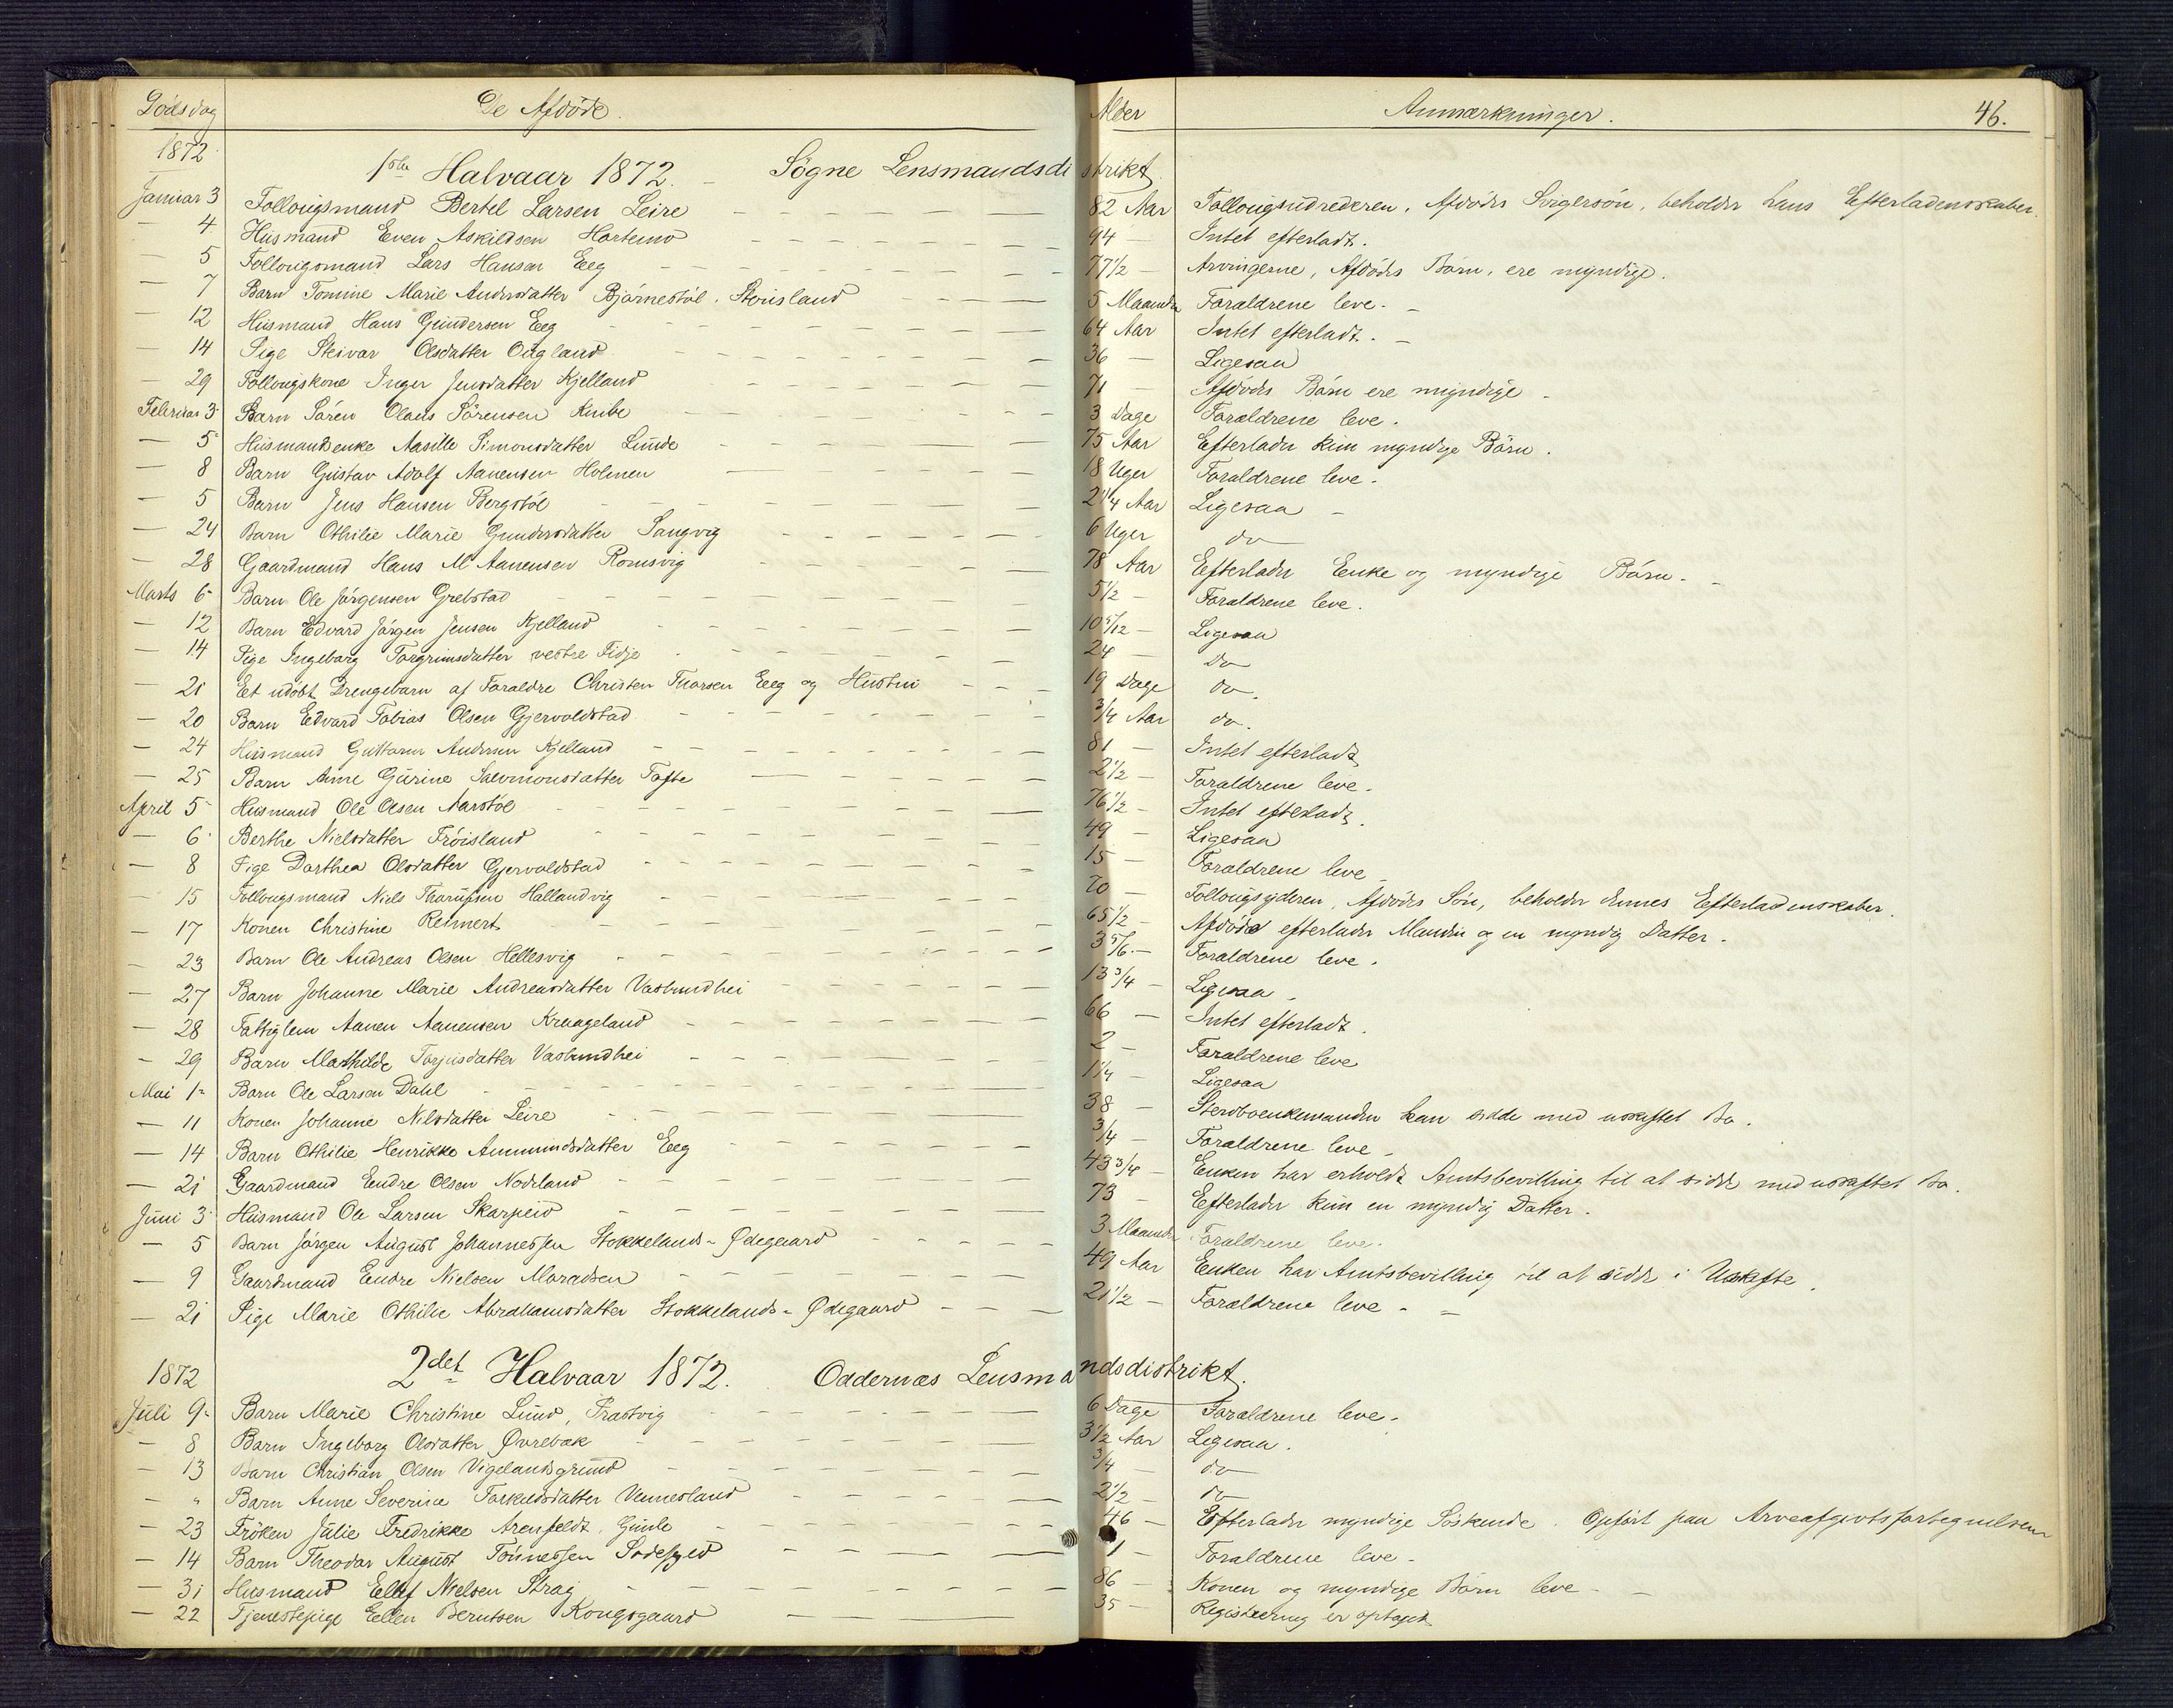 Dödsdag De Afdöde. Alder Anmærkninger. 46.
1872
1ste Halvaar 1872. - Sögne Lensmandsdistrikt
Januar 3 Follougsmand Bertel Larsen Leire 82 Aar Follougsudrederen, Afdödes Svigersön, beholder hans Efterladenskaber.
— 4 Husmand Even Askildsen Hortemo 94 — Intet efterladt.
— 5 Follougsmand Lars Hansen Eeg 77 1/2 — Arvingerne, Afdödes Börn, ere myndige.
— 7 Barn Tomine Marie Andersdatter Björnestöl, Stousland 5 Maaneder Forældrene leve. -
— 12 Husmand Hans Gundersen Eeg 64 Aar Intet efterladt. -
— 14 Pige Steivar Olsdatter Ougland 36 — Ligesaa
— 29 Follougskone Inger Jensdatter Kjelland 71 — Afdödes Börn ere myndige -
Februar 3 Barn Sören Olaus Sörensen Knibe 3 Dage Forældrene leve.
— 5 Husmandsenke Aasille Simonsdatter Lunde 75 Aar Efterlader kun myndige Börn.
— 8 Barn Gustav Adolf Aanensen Holmen 18 Uger Forældrene leve.
— 5 Barn Jens Hansen Bergstöl 2 1/4 Aar Ligesaa -
— 24 Barn Othilie Marie Gundersdatter Langvig 6 Uger do
— 28 Gaardmand Hans M Aanensen Romsvig 78 Aar Efterlader Enke og myndige Börn. -
Marts 6 Barn Ole Jörgensen Grebstad 5 1/2 — Forældrene leve.
— 12 Barn Edvard Jörgen Jensen Kjelland 10 5/12 — Ligesaa
— 14 Pige Ingeborg Torgrimsdatter vestre Fidje 24 — Do
— 21 Et udöbt Drengebarn af Forældre Christen Thorsen Eeg og Hustru 19 Dage do.
— 20 Barn Edvard Tobias Olsen Gjervoldstad 3/4 Aar do.
— 24 Husmand Guttorm Andersen Kjelland 81 — Intet efterladt
— 25 Barn Anne Gurine Salvmonsdatter Tofte 2 1/2 — Forældrene leve.
April 5 Husmand Ole Olsen Aarstöl 76 1/2 — Intet efterladt.
— 6 Berthe Nielsdatter Tröisland 49 — Ligesaa
— 8 Pige Dorthea Olsdatter Gjervoldstad 15 — Forældrene leve -
— 15 Follougsmand Niels Thorussen Hallandvig 70 — Follougsyderen, Afdödes Sön, beholder dennes Efterladenskaber.
— 17 Konen Christine Reimert 65 1/2 — Afdöde efterlader Manden og en myndig Datter.
— 23 Barn Ole Andreas Olsen Hellesvig 3 5/6 — Forældrene leve.
— 27 Barn Johanne Marie Andreasdatter Vasbundhei 13 3/4 — Ligesaa -
— 28 Fattiglem Aanen Aanensen Kraageland 66 — Intet efterladt.
— 29 Barn Mathilde Torjusdatter Vasbundhei 2 — Forældrene leve
Mai 1 Barn Ole Larsen Dahl 1 1/4 — Ligesaa
— 11 Konen Johanne Nilsdatter Leire 38 — Stervboenkemanden kan sidde med uskiftet Bo.
— 14 Barn Othilie Henrikke Ammundsdatter Eeg 3/4 — Forældrene leve -
— 21 Gaardmand Endre Olsen Nodeland 43 3/4 — Enken har erholdt Amtsbevilling til at sidde med uskiftet Bo.
Juni 3 Husmand Ole Larsen Skarpeid 73 — Efterlader kun en myndig Datter.
— 5 Barn Jörgen August Johannessen Stokkelands-Ødegaard 3 Maaneder Forældrene leve.
— 9 Gaardmand Endre Nielsen Monadsen 49 Aar Enken har Amtsbevilling til at sidde i Uskifte.
— 21 Pige Marie Othilie Abrahamsdatter Stokkelands-Ødegaard 21 1/2 — Forældrene leve - -
1872 2det Halvaar 1872. Oddernæs Lensmandsdistrikt.
Juli 9 Barn Marie Christine Lund, Prastvig 6 Dage Forældrene leve.
— 8 Barn Ingeborg Olsdatter Øvrebæk 3 1/2 Aar Ligesaa.
— 13 Barn Christian Olsen Vigelandsgrund 3/4 — do
— " Barn Anne Severine Torkildsdatter Vennesland 2 1/2 — do
— 23 Fröken Julie Fredrikke Arenfeldt, Gimle 46 — Efterlader myndige Söskende. Opfört paa Arveafgivtsfortegnelsen
— 14 Barn Theodor August Tönnessen 1 — Forældrene leve -
— 31 Husmand Ellef Nielsen Strai 86 — Konen og myndige Börn leve - -
— 22 Tjenestepige Ellen Berntsen Kongsgaard 35 — Registrering er optaget